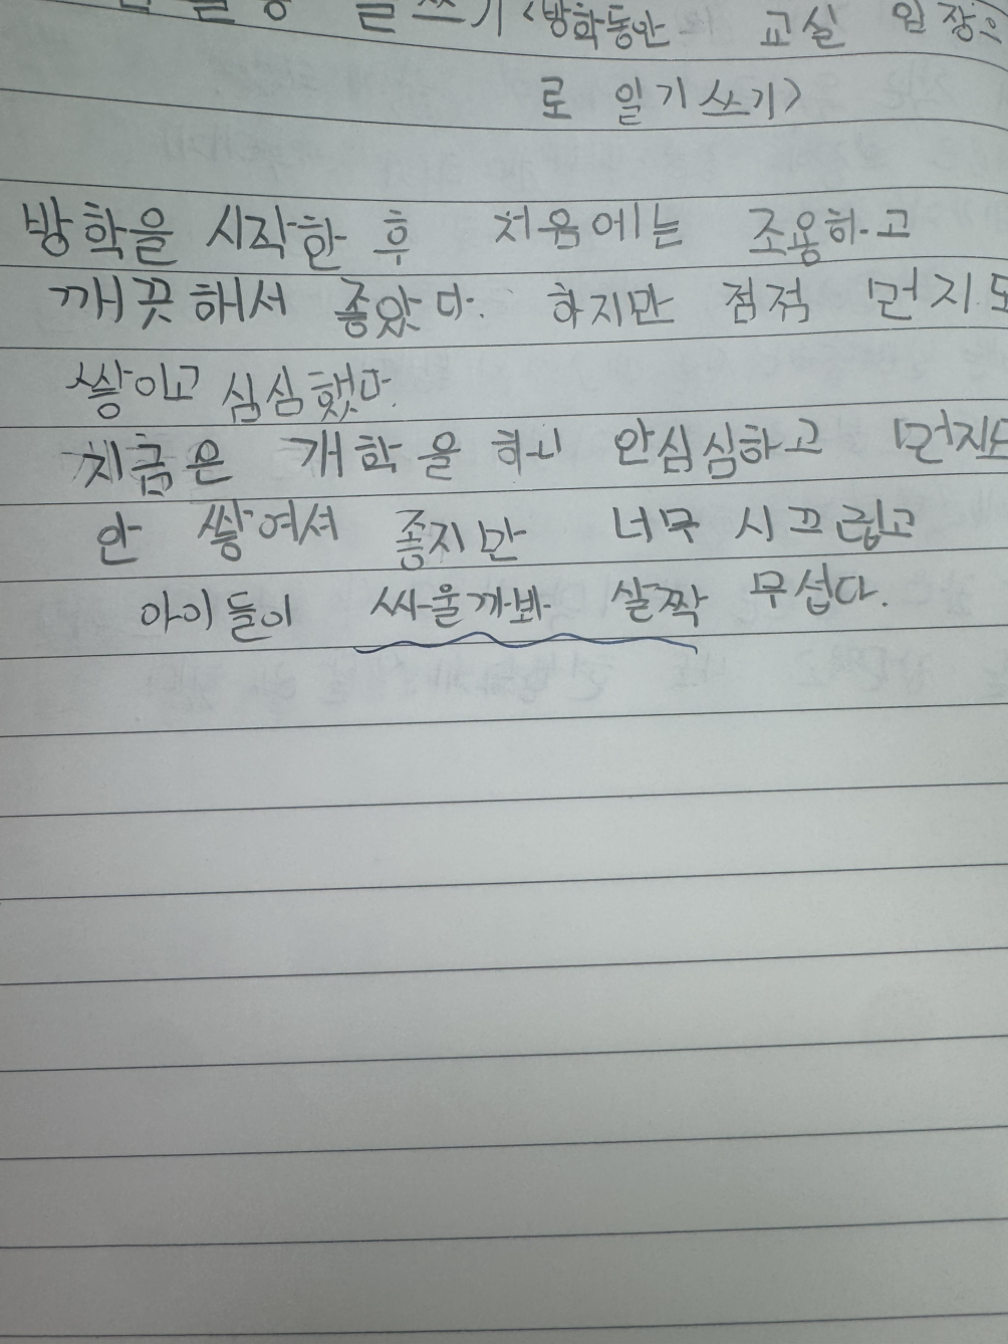 글쓰기 <방학동안 교실 입장으
로 일기쓰기>
방학을 시작한 후 처음에는 조용하고
깨끗해서 좋았다. 하지만 점점 먼지도
쌓이고 심심했다.
지금은 개학을 하니 안심심하고 먼지도
안 쌓여서 좋지만 너무 시끄럽고
아이들이 싸울까봐 살짝 무섭다.